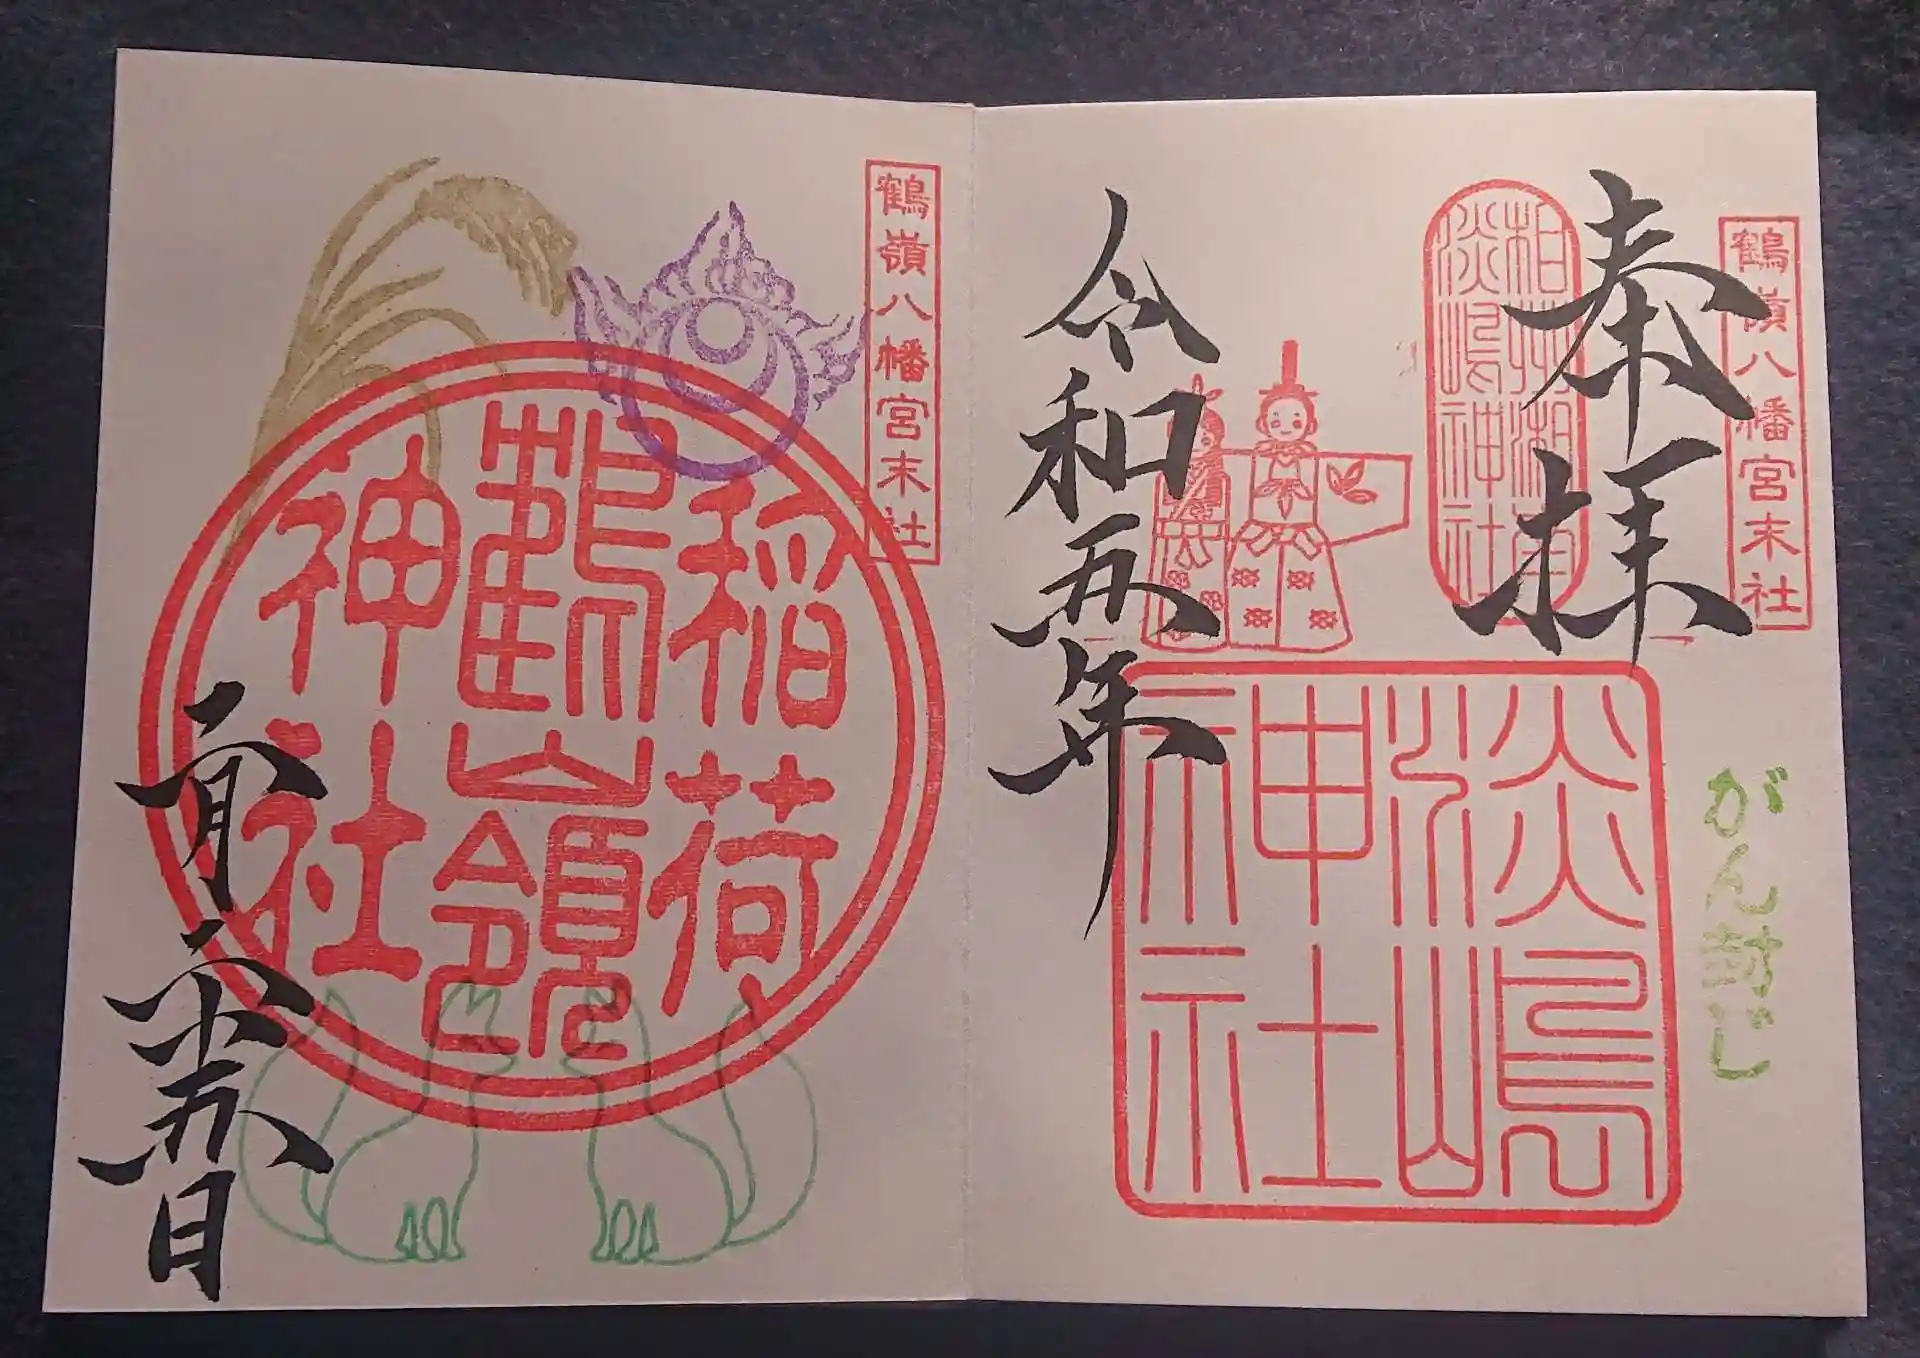 鶴嶺八幡宮末社
奉拝
相州湘南
淡嶋神社
淡嶋
神社
がん封じ
令和五年
鶴嶺八幡宮末社
稲荷
鶴嶺
神社
二月二十五日